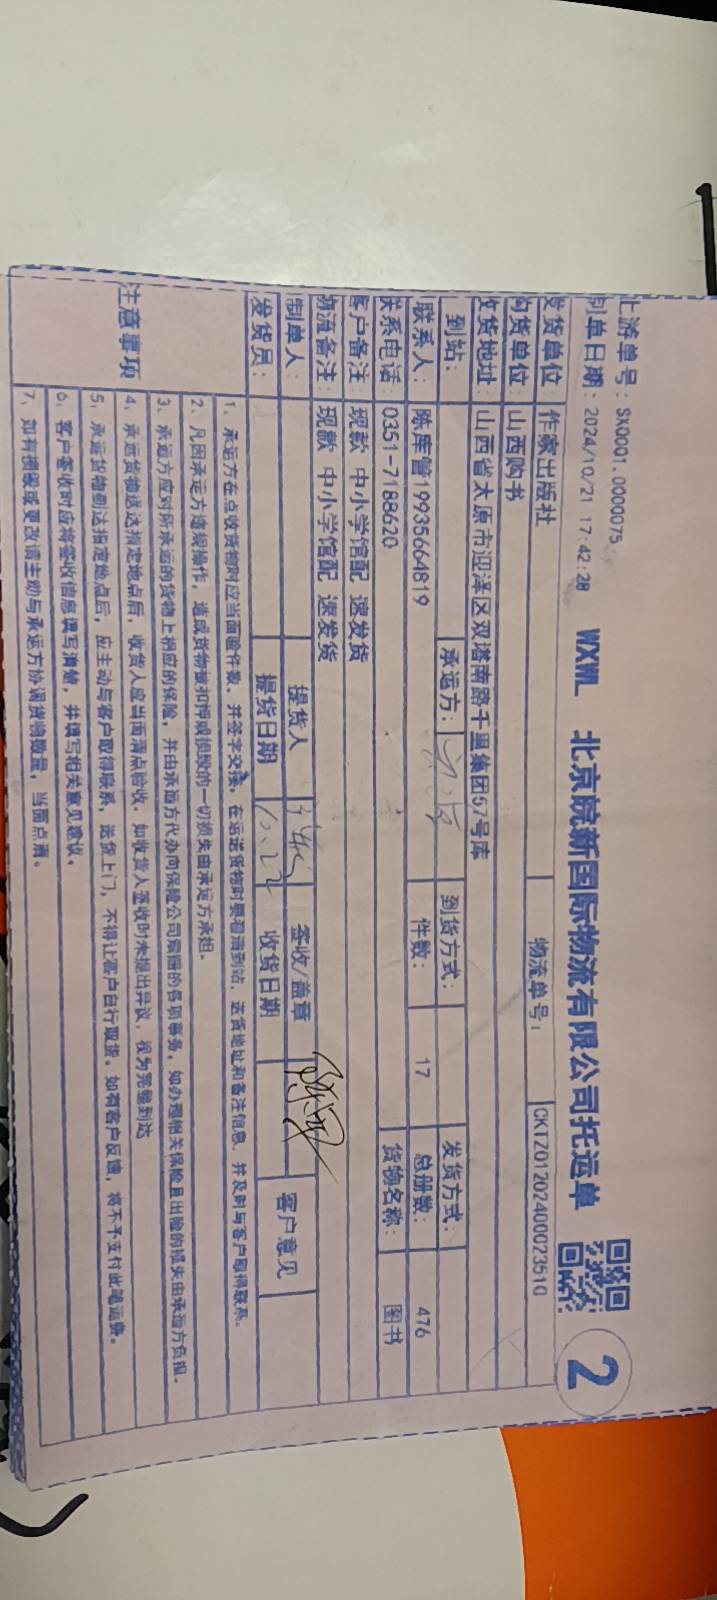 上游单号：SX0001.0000075
制单日期：2024/10/21 17:42:28
WXWL 北京皖新国际物流有限公司托运单
2
发货单位：作家出版社 物流单号： CKTZ012024000235​10
购货单位：山西购书
收货地址：山西省太原市迎泽区双塔南路千里集团57号库
到站： 承运方： 到货方式： 发货方式：
联系人：陈库管19935664819 件数： 17 总册数： 476
联系电话：0351-7188620 货物名称： 图书
客户备注：现款 中小学馆配 速发货
物流备注：现款 中小学馆配 速发货
制单人： 提货人 签收/盖章 客户意见
发货员： 提货日期 10.22 收货日期
注意事项
1、承运方在点收货物时应当面验件数，并签字交接，在运送货物时要看清到站，送货地址和备注信息，并及时与客户取得联系。
2、凡因承运方违规操作，造成货物被扣押或损毁的一切损失由承运方承担。
3、承运方应对所承运的货物上相应的保险，并由承运方代办向保险公司索赔的各项事务，如办理相关保险且出险的损失由承运方负担。
4、承运货物送达指定地点后，收货人应当面清点验收，如收货人签收时未提出异议，视为完整到达
5、承运货物到达指定地点后，应主动与客户取得联系，送货上门，不得让客户自行取货。如有客户反馈，将不予支付此笔运费。
6、客户签收时应将签收信息填写清楚，并填写相关意见建议。
7、如有损毁或更改请主动与承运方协调货物数量，当面点清。